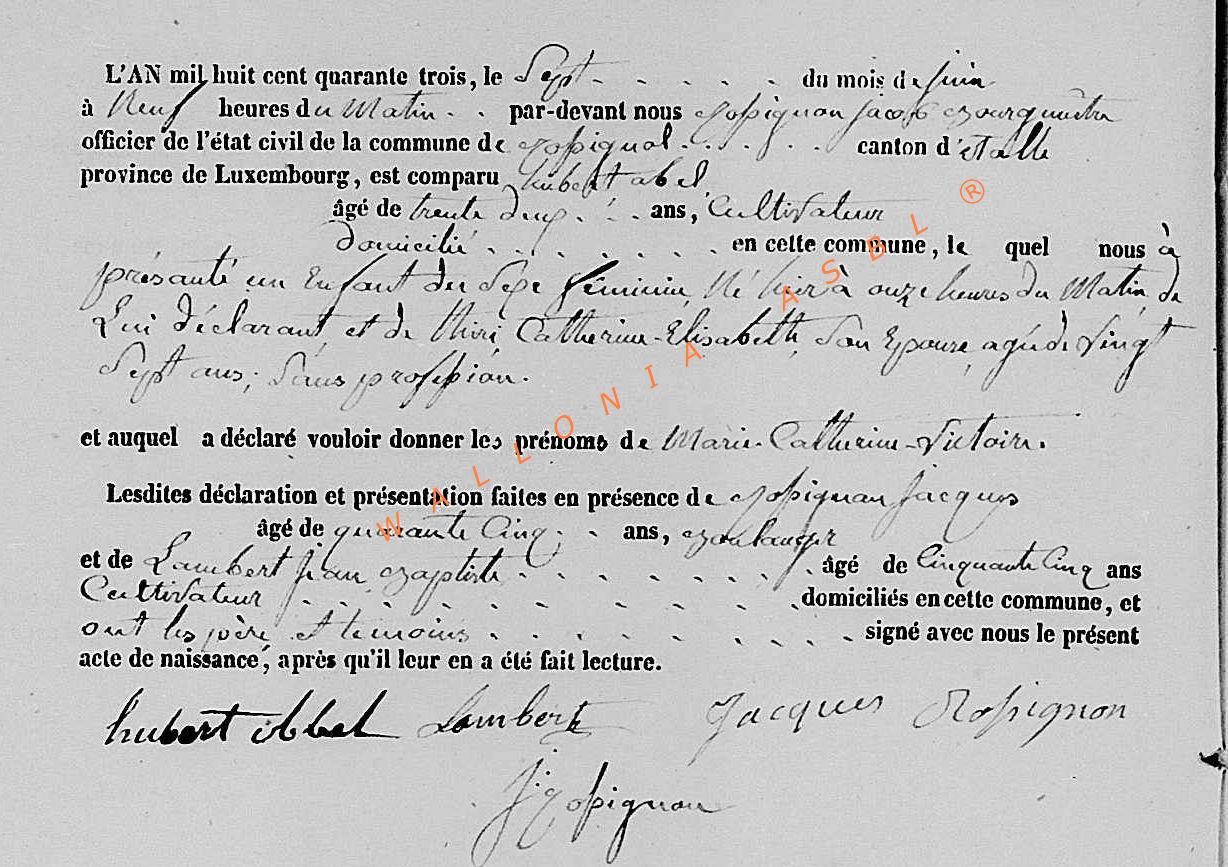 L'AN mil huit cent quarante trois, le Sept - - - - - du mois de juin
à Neuf heures du Matin - - par-devant nous Rossignon Jacob Bourguemêtre
officier de l'état civil de la commune de Rossignol - - - - - canton d'Etalle
province de Luxembourg, est comparu hubert abel
âgé de trente deux - - - ans, Cultivateur
domicilié - - - - - - - en cette commune, le quel nous à
présanté un Enfant du Sexe féminin, Né hier à onze heures du Matin, de
Lui déclarant, et de Catherine-Elisabeth, Son Epouse, agée de Vingt
Sept ans, Sans profession.
et auquel a déclaré vouloir donner les prénoms de Marie-Catherine-Victoire.
Lesdites déclaration et présentation faites en présence de Rossignon Jacques
âgé de quarante Cinq - - ans, Boulanger
et de Lambert jean Baptiste - - - - - - - - âgé de Cinquante Cinq ans
Cultivateur - - - - - - - - - domiciliés en cette commune, et
ont les père et temoins - - - - - - - signé avec nous le présent
acte de naissance, après qu'il leur en a été fait lecture.
hubert Abbel Lambert Jacques Rossignon
J Rossignon
WALLONIA ASBL ®